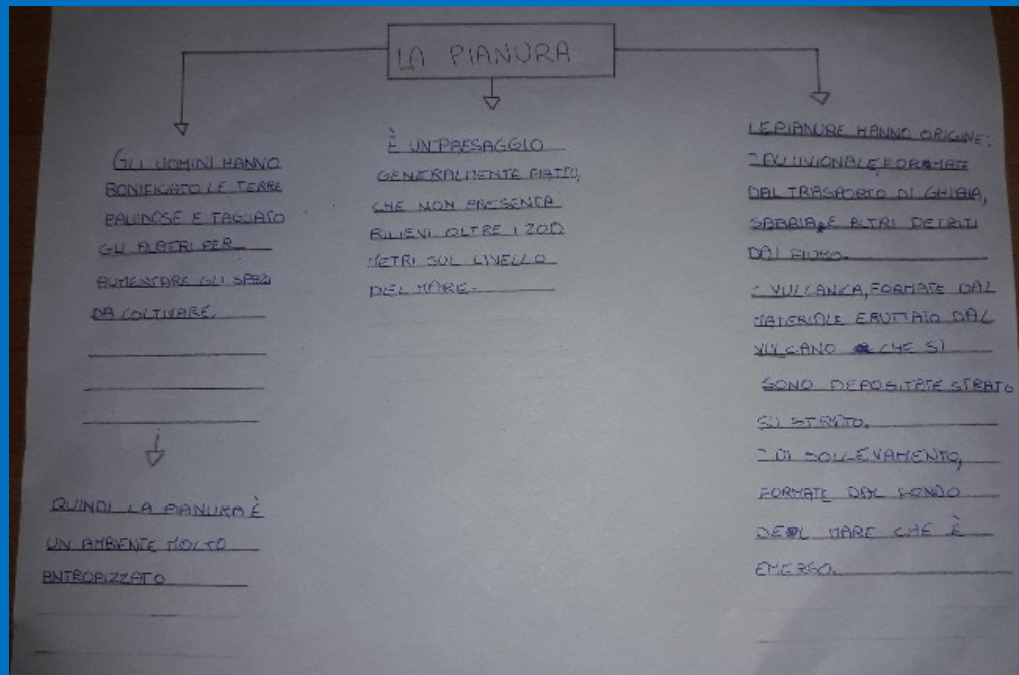 LA PIANURA
GLI UOMINI HANNO
BONIFICATO LE TERRE
PALUDOSE E TAGLIATO
GLI ALBERI PER
AUMENTARE GLI SPAZI
DA COLTIVARE.
QUINDI LA PIANURA È
UN AMBIENTE MOLTO
ANTROPIZZATO
È UN PAESAGGIO
GENERALMENTE PIATTO,
CHE NON PRESENTA
RILIEVI OLTRE I 200
METRI SUL LIVELLO
DEL MARE.
LE PIANURE HANNO ORIGINE:
- ALLUVIONALE, FORMATE
DAL TRASPORTO DI GHIAIA,
SABBIA, E ALTRI DETRITI
DAI FIUMI.
- VULCANICA, FORMATE DAL
MATERIALE ERUTTATO DAL
VULCANO CHE SI
SONO DEPOSITATE STRATO
SU STRATO.
- DI SOLLEVAMENTO,
FORMATE DAL FONDO
DEL MARE CHE È
EMERSO.